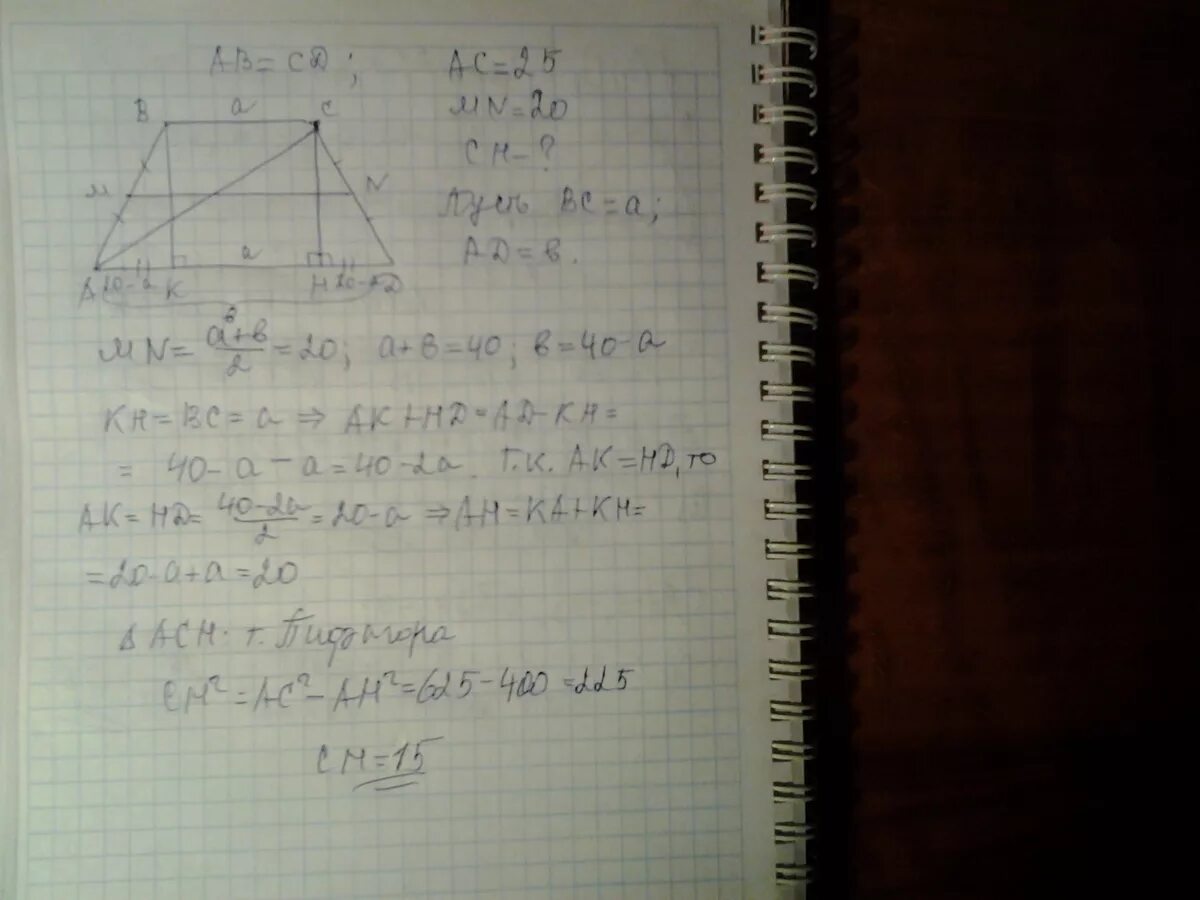 AB = CD; AC = 25
B a C MN = 20
CH - ?
M N Пусть BC = a;
a AD = в.
A 20-a K H 20-a D
в
MN = a+в/2 = 20; a+в = 40; в = 40-a
KH = BC = a ⇒ AK + HD = AD - KH =
= 40 - a - a = 40 - 2a. Т.к. AK = HD, то
AK = HD = 40-2a/2 = 20-a ⇒ AH = KA + KH =
= 20-a+a = 20
Δ ACH. т. Пифагора
CH² = AC² - AH² = 625 - 400 = 225
CH = 15